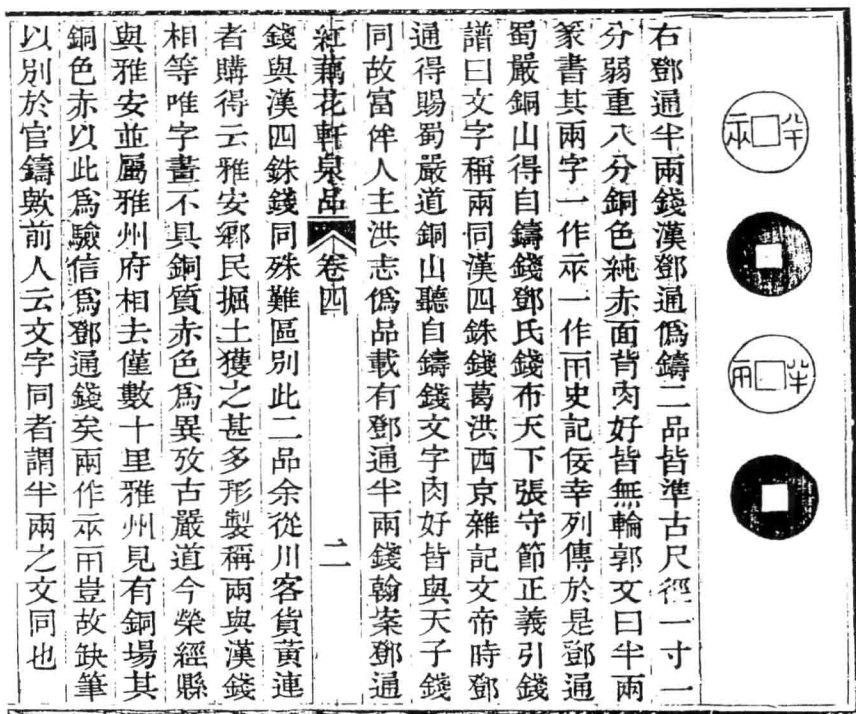 半兩
半兩
右鄧通半兩錢漢鄧通僞鑄二品皆準古尺徑一寸一
分弱重八分銅色純赤面背肉好皆無輪郭文曰半兩
篆書其兩字一作㒳一作㒳史記佞幸列傳於是鄧通
蜀嚴銅山得自鑄錢鄧氏錢布天下張守節正義引錢
譜曰文字稱兩同漢四銖錢葛洪西京雜記文帝時鄧
通得賜蜀嚴道銅山聽自鑄錢文字肉好皆與天子錢
同故富侔人主洪志僞品載有鄧通半兩錢翰案鄧通
紅藕花軒泉品 卷四 二
錢與漢四銖錢同殊難區別此二品余從川客貨黃連
者購得云雅安鄉民掘土獲之甚多形製稱兩與漢錢
相等唯字畫不具銅質赤色爲異攷古嚴道今榮經縣
與雅安並屬雅州府相去僅數十里雅州見有銅場其
銅色赤以此爲驗信爲鄧通錢矣兩作㒳㒳豈故缺筆
以別於官鑄歟前人云文字同者謂半兩之文同也